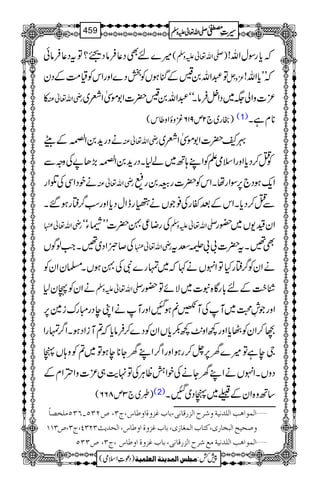 سیرتِ مصطفیٰ صلی اللہ تعالیٰ علیہ وسلم 459
کہ یارسول اللہ! (صلی اللہ تعالیٰ علیہ وسلم) میرے لئے بھی دعا فرما دیجئے؟ تو یہ دعا فرمائی
کہ ”یااللہ! عزوجل تو عبداللہ بن قیس کے گناہوں کو بخش دے اور اس کو قیامت کے دن
عزت والی جگہ میں داخل فرما۔“ عبداللہ بن قیس حضرت ابوموسیٰ اشعری رضی اللہ تعالیٰ عنہ کا
نام ہے۔(1) (بخاری ج۲ ص۶۱۹ غزوۂ اوطاس)
بہر کیف حضرت ابوموسیٰ اشعری رضی اللہ تعالیٰ عنہ نے درید بن الصمہ کے بیٹے کو
قتل کردیا اور اسلامی علم کو اپنے ہاتھ میں لے لیا۔ درید بن الصمہ بڑھاپے کی وجہ سے
ایک ہودج پر سوار تھا۔ اس کو حضرت ربیعہ بن رفیع رضی اللہ تعالیٰ عنہ نے خود اسی کی تلوار
سے قتل کردیا۔ اس کے بعد کفار کی فوجوں نے ہتھیار ڈال دیا اور سب گرفتار ہو گئے۔
ان قیدیوں میں حضور صلی اللہ تعالیٰ علیہ وسلم کی رضاعی بہن حضرت ”شیماء“ رضی اللہ تعالیٰ عنہا
بھی تھیں۔ یہ حضرت بی بی حلیمہ سعدیہ رضی اللہ تعالیٰ عنہا کی صاحبزادی تھیں۔ جب لوگوں
نے ان کو گرفتار کیا تو انہوں نے کہا کہ میں تمہارے نبی کی بہن ہوں۔ مسلمان ان کو
شناخت کے لئے بارگاہ نبوت میں لائے تو حضور صلی اللہ تعالیٰ علیہ وسلم نے ان کو پہچان لیا
اور جوشِ محبت میں آپ کی آنکھیں نم ہوگئیں اور آپ نے اپنی چادر مبارک زمین پر
بچھا کر ان کو بٹھایا اور کچھ اونٹ کچھ بکریاں ان کو دے کر فرمایا کہ تم آزاد ہو۔ اگر تمہارا
جی چاہے تو میرے گھر پر چل کر رہو اور اگر اپنے گھر جانا چاہو تو میں تم کو وہاں پہنچا
دوں۔ انہوں نے اپنے گھر جانے کی خواہش ظاہر کی تو نہایت ہی عزت و احترام کے
ساتھ وہ ان کے قبیلے میں پہنچا دی گئیں۔(2) (طبری ج۳ ص۶۶۸)
المواهب اللدنیة و شرح الزرقانی، باب غزوة اوطاس، ج۳، ص۵۳۲، ۵۳۶ملخصاً
وصحیح البخاری، کتاب المغازی، باب غزوة اوطاس، الحدیث:۴۳۲۳، ج۳، ص۱۱۳
المواهب اللدنیة مع شرح الزرقانی، باب غزوة اوطاس، ج۳، ص۵۳۳
پیش کش: مجلس المدینة العلمیة (دعوتِ اسلامی)